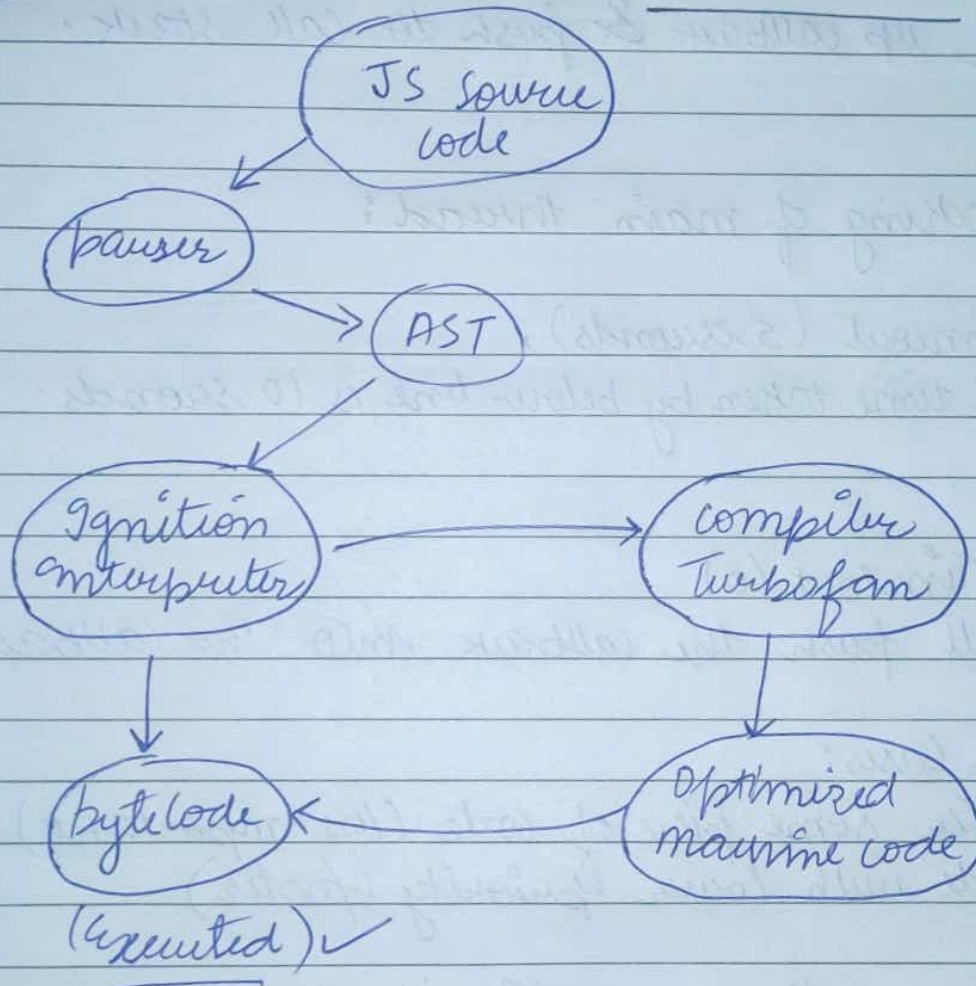 JS source
code
parser
AST
Ignition
Interpreter
compiler
Turbofan
bytecode
Optimized
machine code
(Executed) ✓